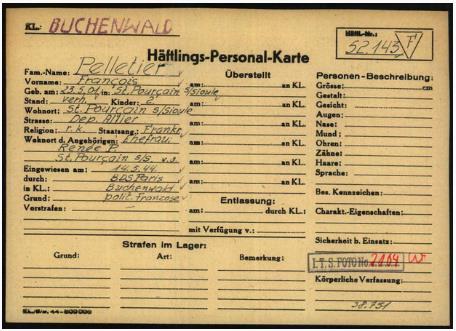 KL.: BUCHENWALD
Häftl.-Nr.:
52.145 F
Häftlings-Personal-Karte
Fam.-Name: Pelletier
Vorname: François
Geb. am: in: St. Pourçain s/Sioule
Stand: verh. Kinder: 2
Wohnort: St. Pourçain s/Sioule
Strasse: Dep. Allier
Religion: r.k. Staatsang.: Frankr.
Wohnort d. Angehörigen: Ehefrau,
Renée P.
St. Pourçain s/S. w.o.
Eingewiesen am: 14.5.44
durch: BDS Paris
in KL.: Buchenwald
Grund: polit. Franzose
Vorstrafen:
Überstellt
am: an KL.
am: an KL.
am: an KL.
am: an KL.
am: an KL.
am: an KL.
Entlassung:
am: durch KL.:
mit Verfügung v.:
Personen-Beschreibung:
Grösse: cm
Gestalt:
Gesicht:
Augen:
Nase:
Mund:
Ohren:
Zähne:
Haare:
Sprache:
Bes. Kennzeichen:
Charakt.-Eigenschaften:
Sicherheit b. Einsatz:
I.T.S. FOTO No. 2164
Körperliche Verfassung:
Strafen im Lager:
Grund: Art: Bemerkung: